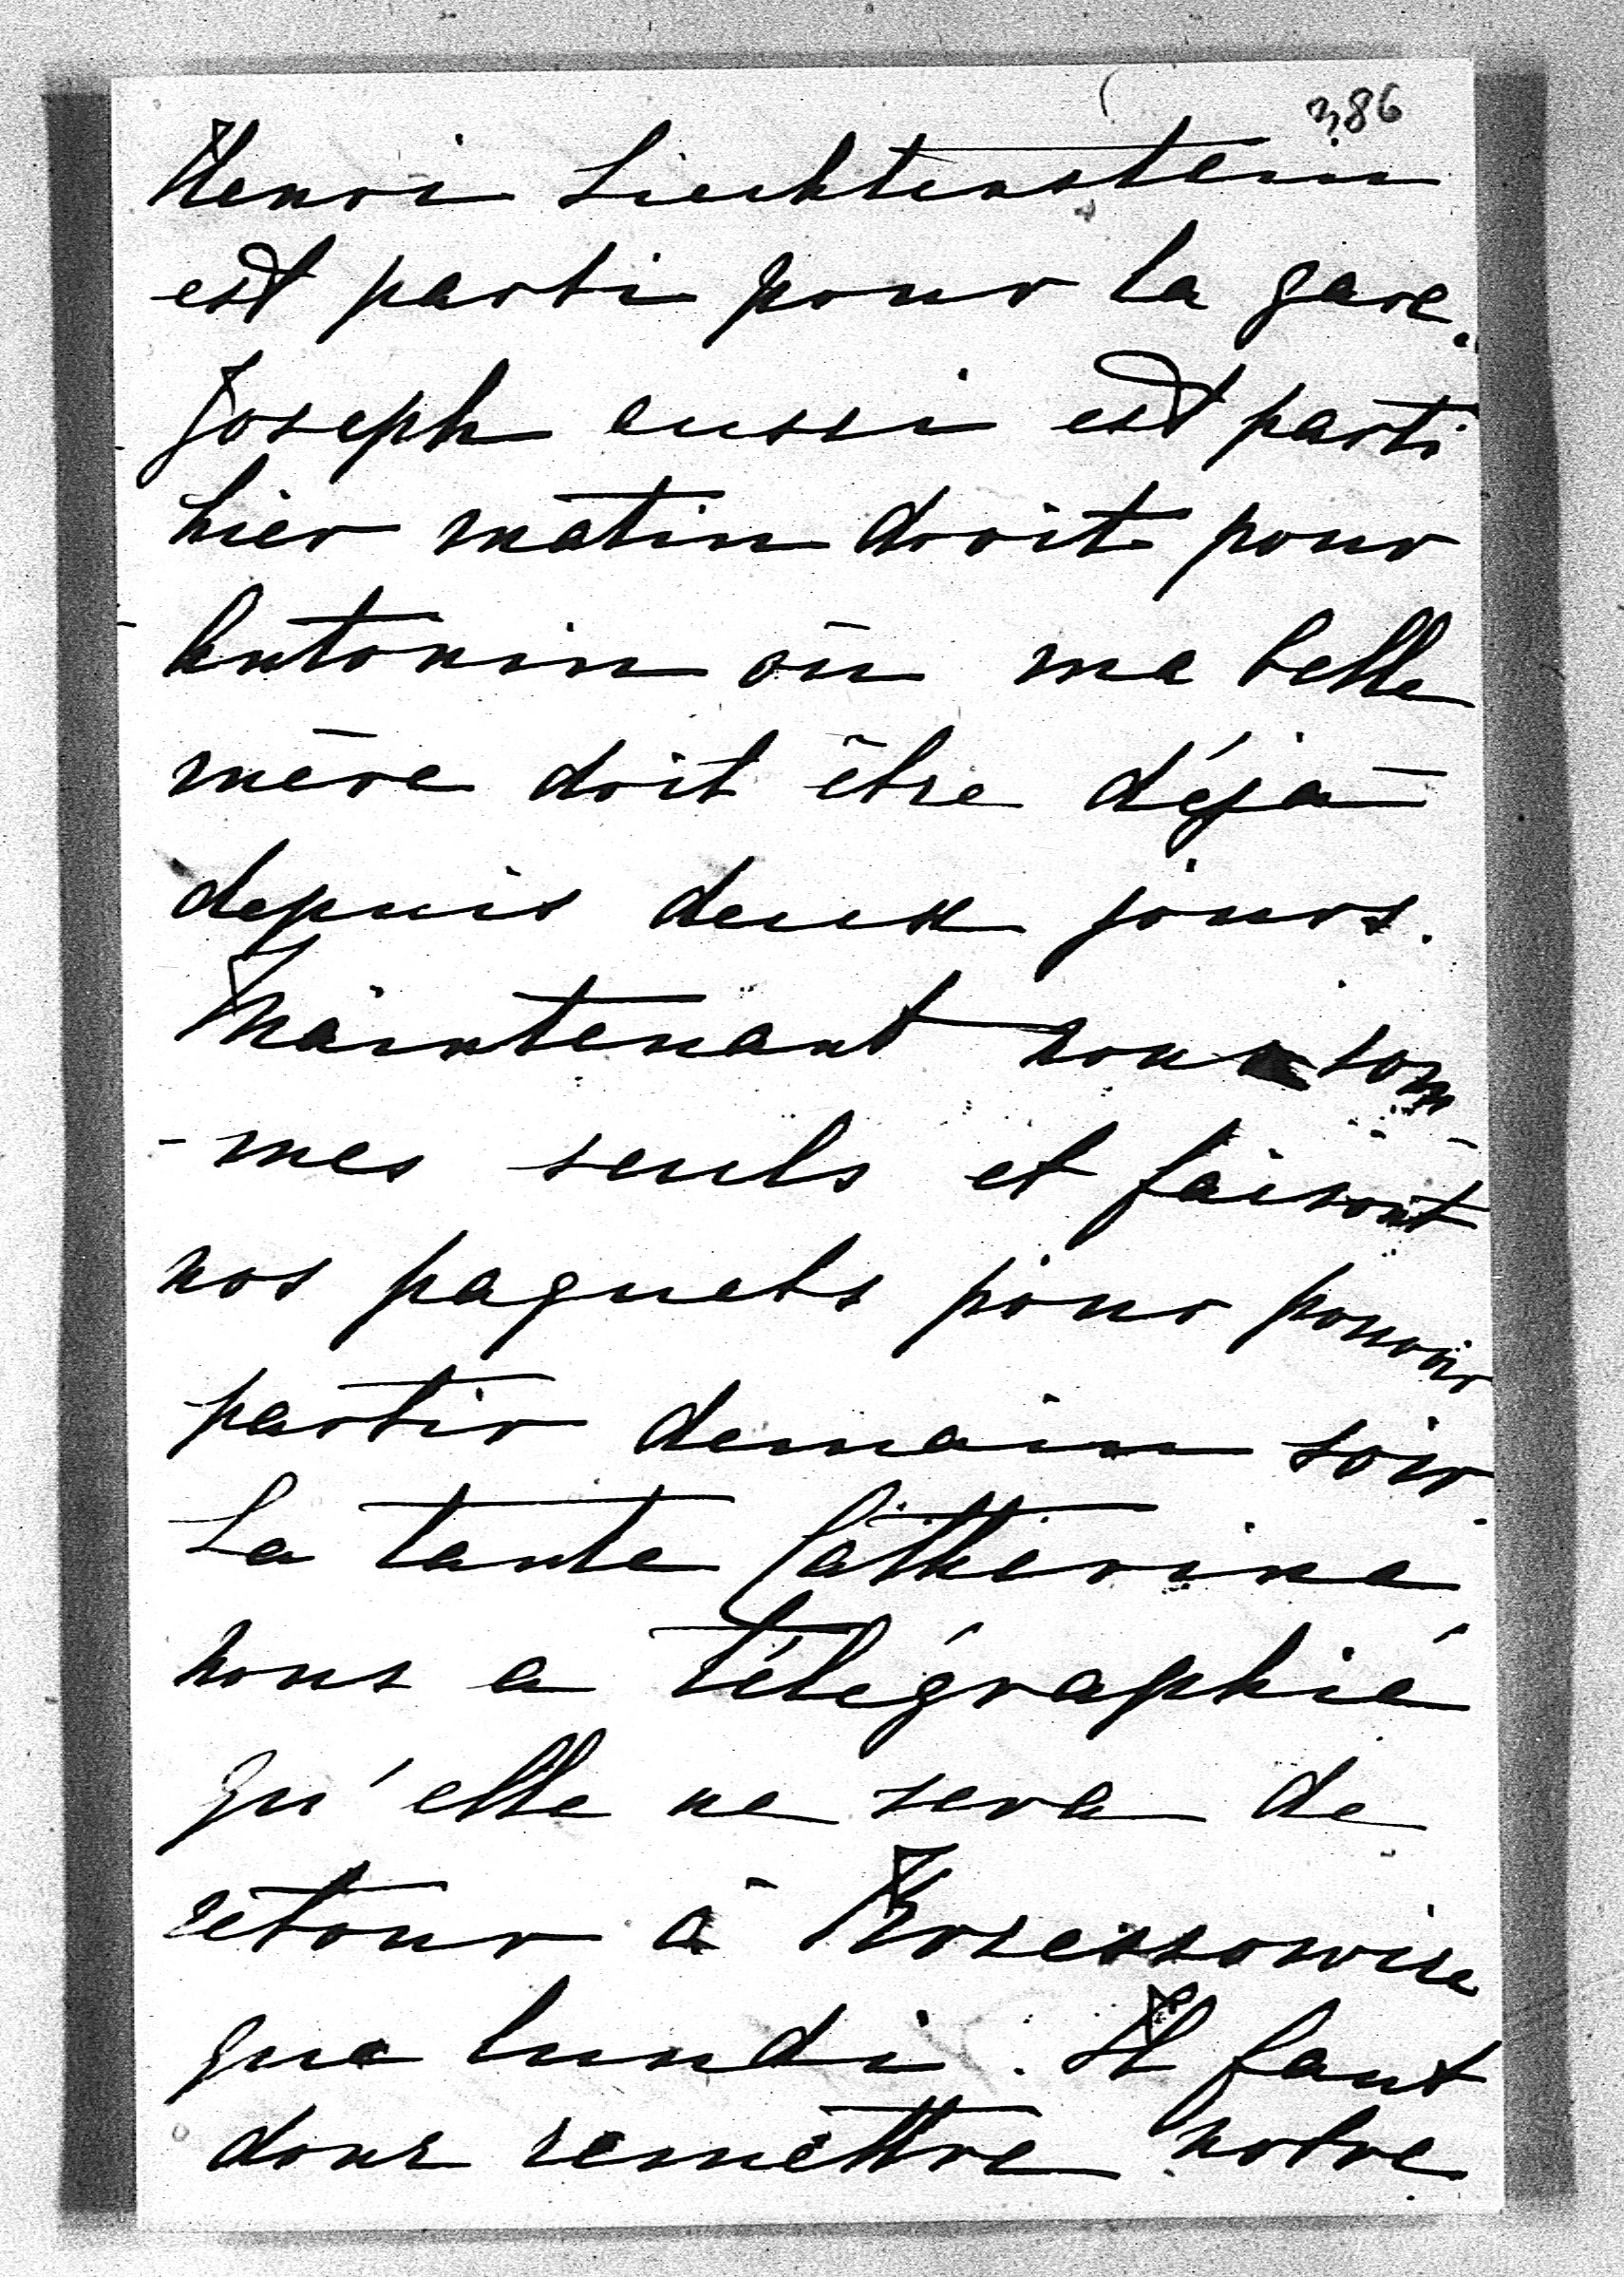 386
Henri Liechtenstein
est parti pour la gare.
Joseph aussi est parti
hier matin droit pour
Antonin où ma belle
mère doit être déjà
depuis deux jours.
Maintenant nous som
-mes seuls et faisont
nos paquets pour pouvoir
partir demain soir.
La tante Catherine
nous a télégraphié
qu'elle ne sera de
retour à
que lundi. Il faut
donc remettre notre